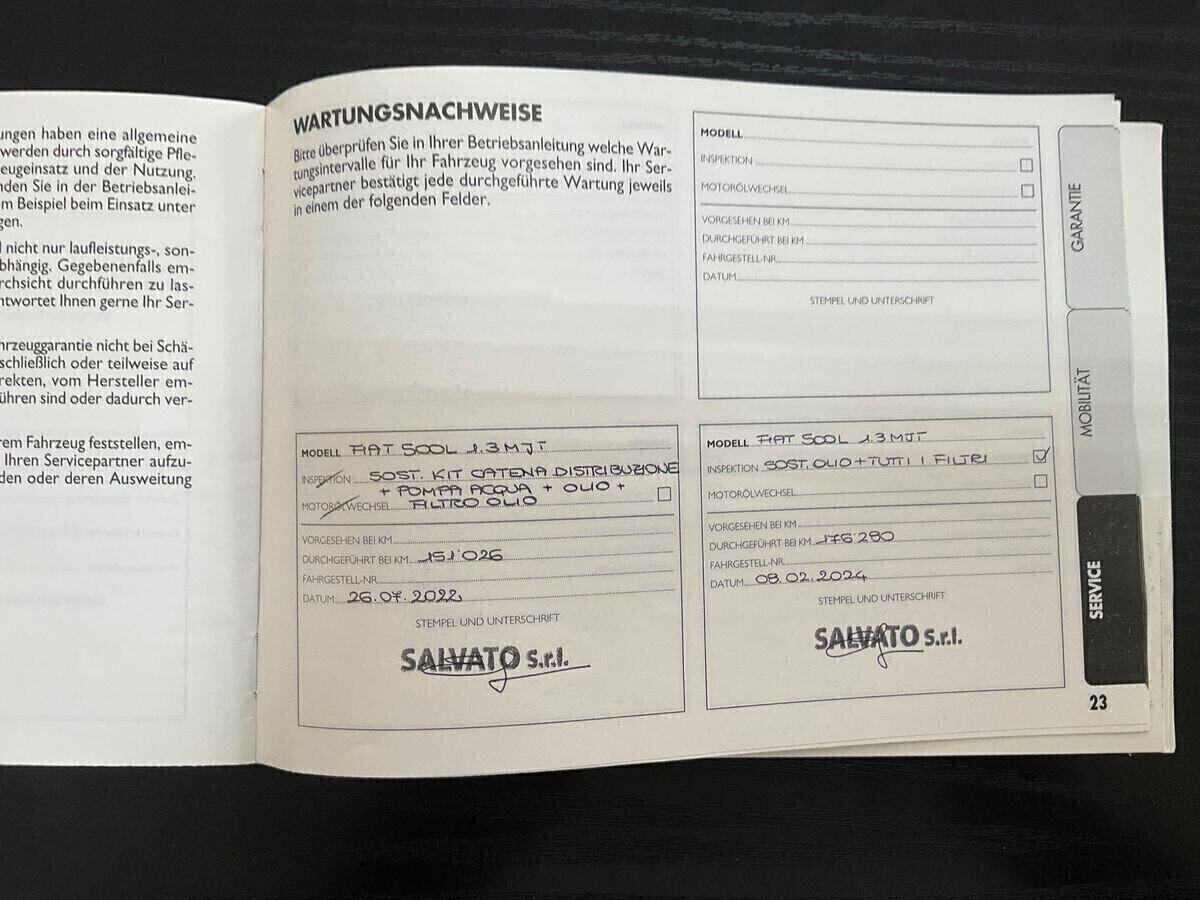 ungen haben eine allgemeine
werden durch sorgfältige Pfle-
zeugeinsatz und der Nutzung.
nden Sie in der Betriebsanlei-
m Beispiel beim Einsatz unter
gen.
d nicht nur laufleistungs-, son-
bhängig. Gegebenenfalls em-
rchsicht durchführen zu las-
ntwortet Ihnen gerne Ihr Ser-
hrzeuggarantie nicht bei Schä-
schließlich oder teilweise auf
rekten, vom Hersteller em-
ühren sind oder dadurch ver-
rem Fahrzeug feststellen, em-
Ihren Servicepartner aufzu-
den oder deren Ausweitung
WARTUNGSNACHWEISE
Bitte überprüfen Sie in Ihrer Betriebsanleitung welche War-
tungsintervalle für Ihr Fahrzeug vorgesehen sind. Ihr Ser-
vicepartner bestätigt jede durchgeführte Wartung jeweils
in einem der folgenden Felder.
MODELL
INSPEKTION
MOTORÖLWECHSEL
VORGESEHEN BEI KM
DURCHGEFÜHRT BEI KM
FAHRGESTELL-NR.
DATUM
STEMPEL UND UNTERSCHRIFT
MODELL FIAT 500L 1.3 MJT
INSPEKTION SOST. KIT CATENA DISTRIBUZIONE
+ POMPA ACQUA + OLIO +
MOTORÖLWECHSEL FILTRO OLIO
VORGESEHEN BEI KM
DURCHGEFÜHRT BEI KM 151'026
FAHRGESTELL-NR.
DATUM 26.07.2022
STEMPEL UND UNTERSCHRIFT
SALVATO S.r.l.
MODELL FIAT 500L 1.3 MJT
INSPEKTION SOST. OLIO + TUTTI I FILTRI
MOTORÖLWECHSEL
VORGESEHEN BEI KM
DURCHGEFÜHRT BEI KM 176'280
FAHRGESTELL-NR.
DATUM 08.02.2024
STEMPEL UND UNTERSCHRIFT
SALVATO S.r.l.
GARANTIE
MOBILITÄT
SERVICE
23